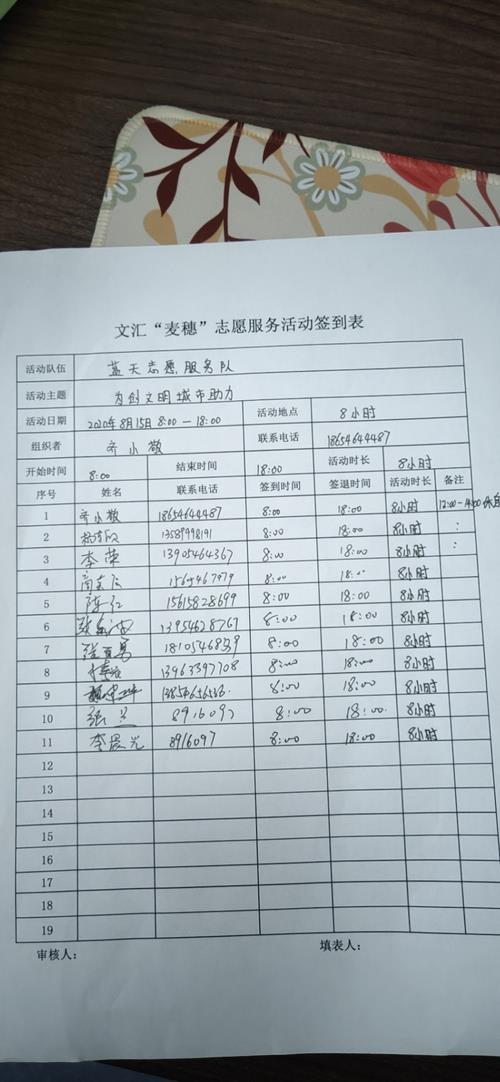 文汇“麦穗”志愿服务活动签到表
活动队伍 蓝天志愿服务队
活动主题 为创文明城市助力
活动日期 2020年8月15日 8:00 — 18:00 活动地点 8小时
组织者 齐小敬 联系电话 18654644487
开始时间 8:00 结束时间 18:00 活动时长 8小时
序号 姓名 联系电话 签到时间 签退时间 活动时长 备注
1 齐小敬 18654644487 8:00 18:00 8小时 12:00-14:00休息
2 13589998191 8:00 18:00 8小时 :
3 李荣 13905464367 8:00 18:00 8小时 :
4 8:00 18:00 8小时
5 陈红 15615828699 8:00 18:00 8小时
6 13954628767 8:00 18:00 8小时
7 18105468539 8:00 18:00 8小时
8 13963397708 8:00 18:00 8小时
9 8:00 18:00 8小时
10 张兰 8916097 8:00 18:00 8小时
11 李晨光 8916097 8:00 18:00 8小时
12
13
14
15
16
17
18
19
审核人: 填表人: